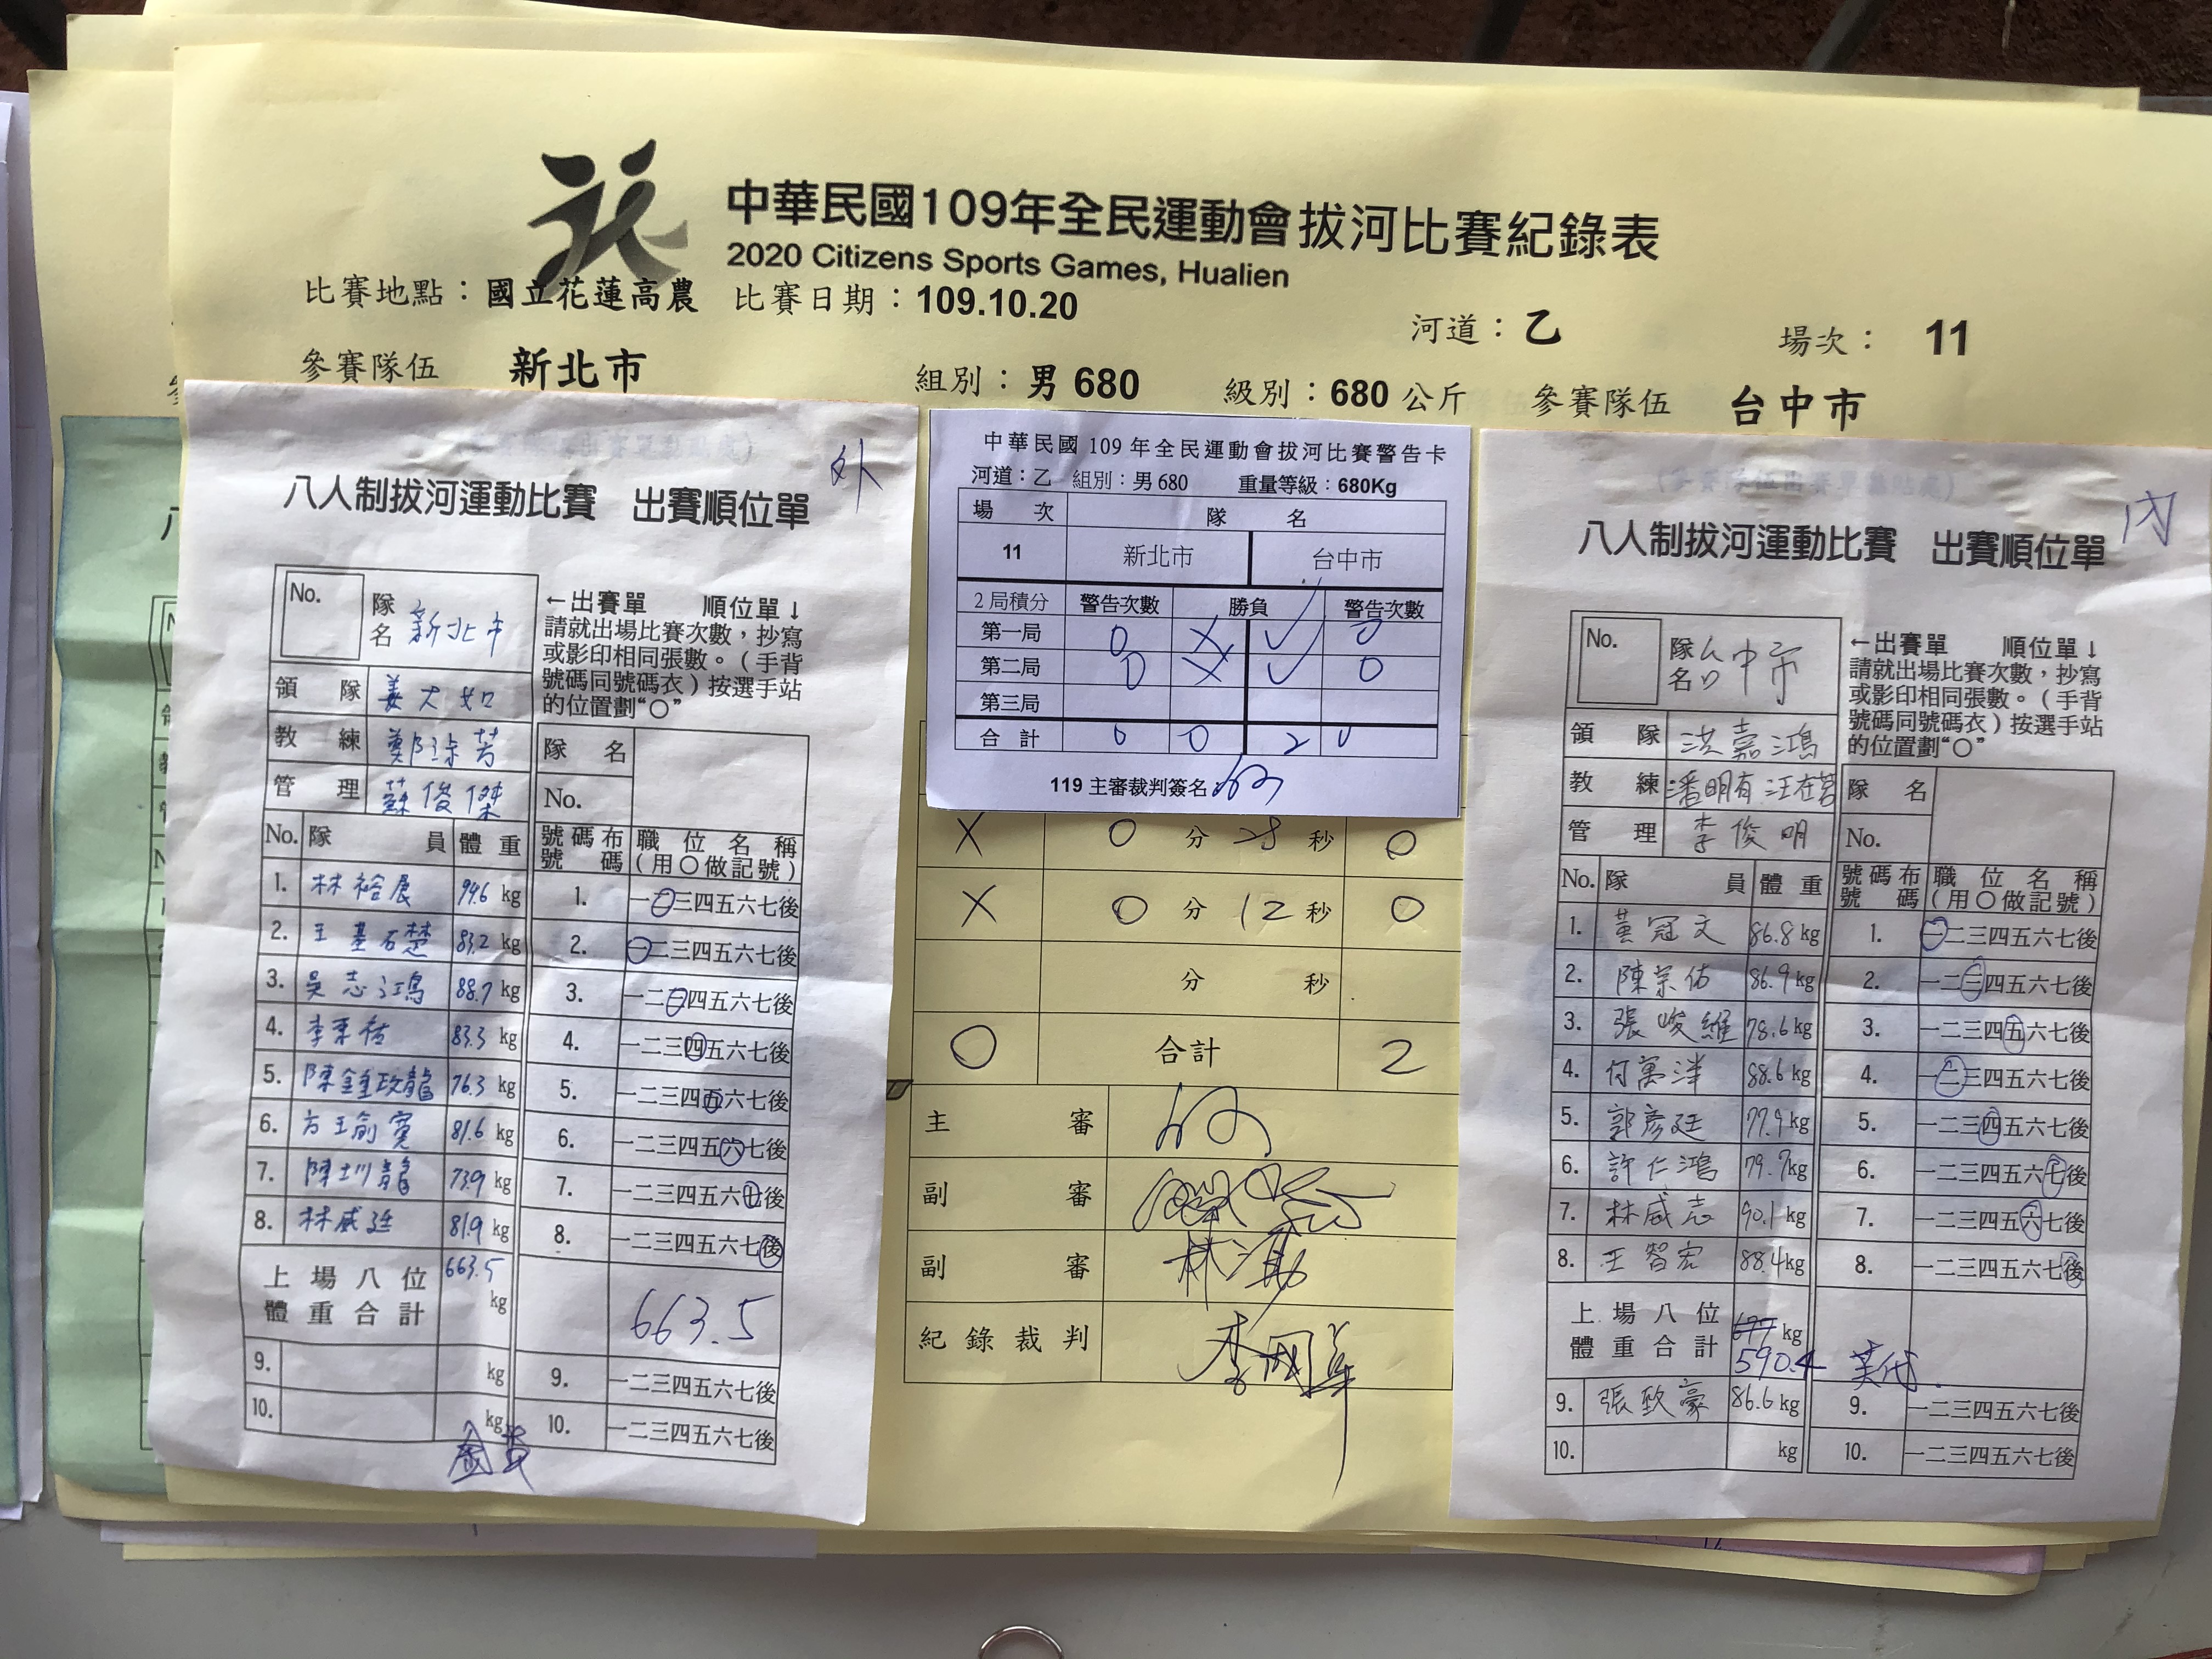 中華民國109年全民運動會拔河比賽紀錄表
2020 Citizens Sports Games, Hualien
比賽地點：國立花蓮高農 比賽日期：109.10.20
河道：乙 場次： 11
參賽隊伍 新北市 組別：男 680 級別：680 公斤 參賽隊伍 台中市
外
八人制拔河運動比賽 出賽順位單
No. 隊名 新北市
←出賽單 順位單↓
請就出場比賽次數，抄寫
或影印相同張數。（手背
號碼同號碼衣）按選手站
的位置劃“○”
領隊
教練
管理 蘇俊傑
隊名
No.
No. 隊員 體重 號碼布號碼 職位名稱(用○做記號)
1. 林裕展 94.6 kg 1. 一二三四五六七後
2. 王基石楚 83.2 kg 2. 一二三四五六七後
3. 吳志鴻 88.7 kg 3. 一二三四五六七後
4. 李秉祐 83.3 kg 4. 一二三四五六七後
5. 陳鍾政龍 76.3 kg 5. 一二三四五六七後
6. 方王俞寬 81.6 kg 6. 一二三四五六七後
7. 陳圳龍 73.9 kg 7. 一二三四五六七後
8. 林威廷 81.9 kg 8. 一二三四五六七後
上場八位體重合計 663.5 kg 663.5
9. kg 9. 一二三四五六七後
10. kg 10. 一二三四五六七後
中華民國 109 年全民運動會拔河比賽警告卡
河道：乙 組別：男 680 重量等級：680Kg
場次 隊名
11 新北市 台中市
2 局積分 警告次數 勝負 警告次數
第一局 0 X ✓ 0
第二局 0 X ✓ 0
第三局
合計 0 0 2 0
119 主審裁判簽名：
X 0 分 28 秒 0
X 0 分 12 秒 0
分 秒
0 合計 2
主審
副審
副審
紀錄裁判
內
八人制拔河運動比賽 出賽順位單
No. 隊名 台中市
←出賽單 順位單↓
請就出場比賽次數，抄寫
或影印相同張數。（手背
號碼同號碼衣）按選手站
的位置劃“○”
領隊 洪嘉鴻
教練 潘明有
管理 李俊明
隊名
No.
No. 隊員 體重 號碼布號碼 職位名稱(用○做記號)
1. 黃冠文 86.8 kg 1. 一二三四五六七後
2. 陳宗佑 86.9 kg 2. 一二三四五六七後
3. 張峻維 78.6 kg 3. 一二三四五六七後
4. 何萬洋 88.6 kg 4. 一二三四五六七後
5. 郭彥廷 77.9 kg 5. 一二三四五六七後
6. 許仁鴻 79.7 kg 6. 一二三四五六七後
7. 林威志 90.1 kg 7. 一二三四五六七後
8. 王智宏 88.4 kg 8. 一二三四五六七後
上場八位體重合計 677 kg
590.4
9. 張致豪 86.6 kg 9. 一二三四五六七後
10. kg 10. 一二三四五六七後